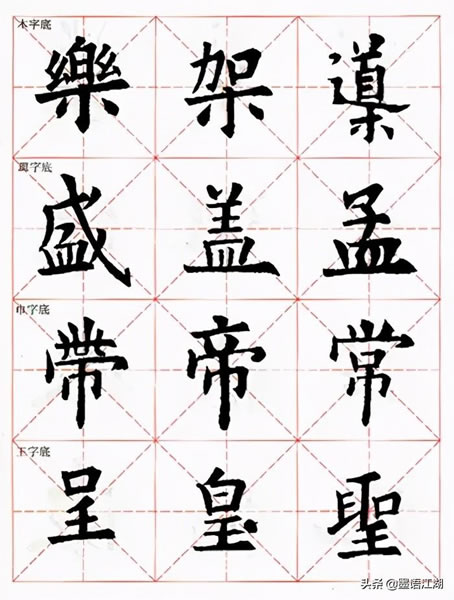 木字底
樂 架 導
皿字底
盛 盖 孟
巾字底
帶 帝 常
王字底
呈 皇 聖
头条 @墨语江湖